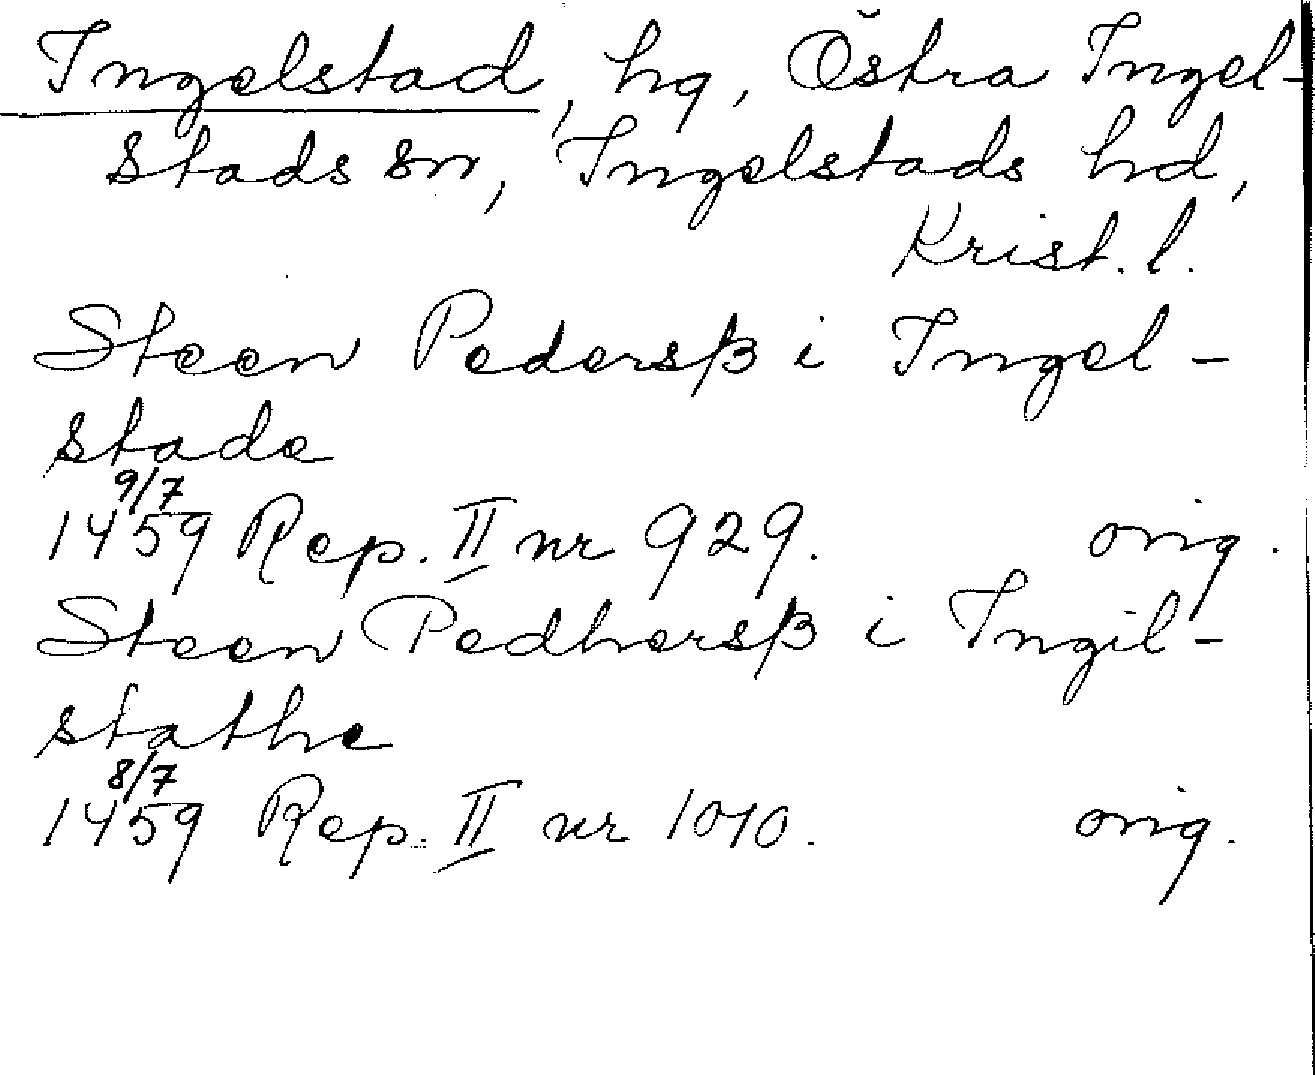 Ingelstad, hg, Östra Ingel-
stads sn, Ingelstads hd,
Krist. l.
Steen Pedersß i Ingel-
stade
9/7
1459 Rep. II nr 929. orig.
Steen Pedhersß i Ingil-
stathe
8/7
1459 Rep. II nr 1010. orig.